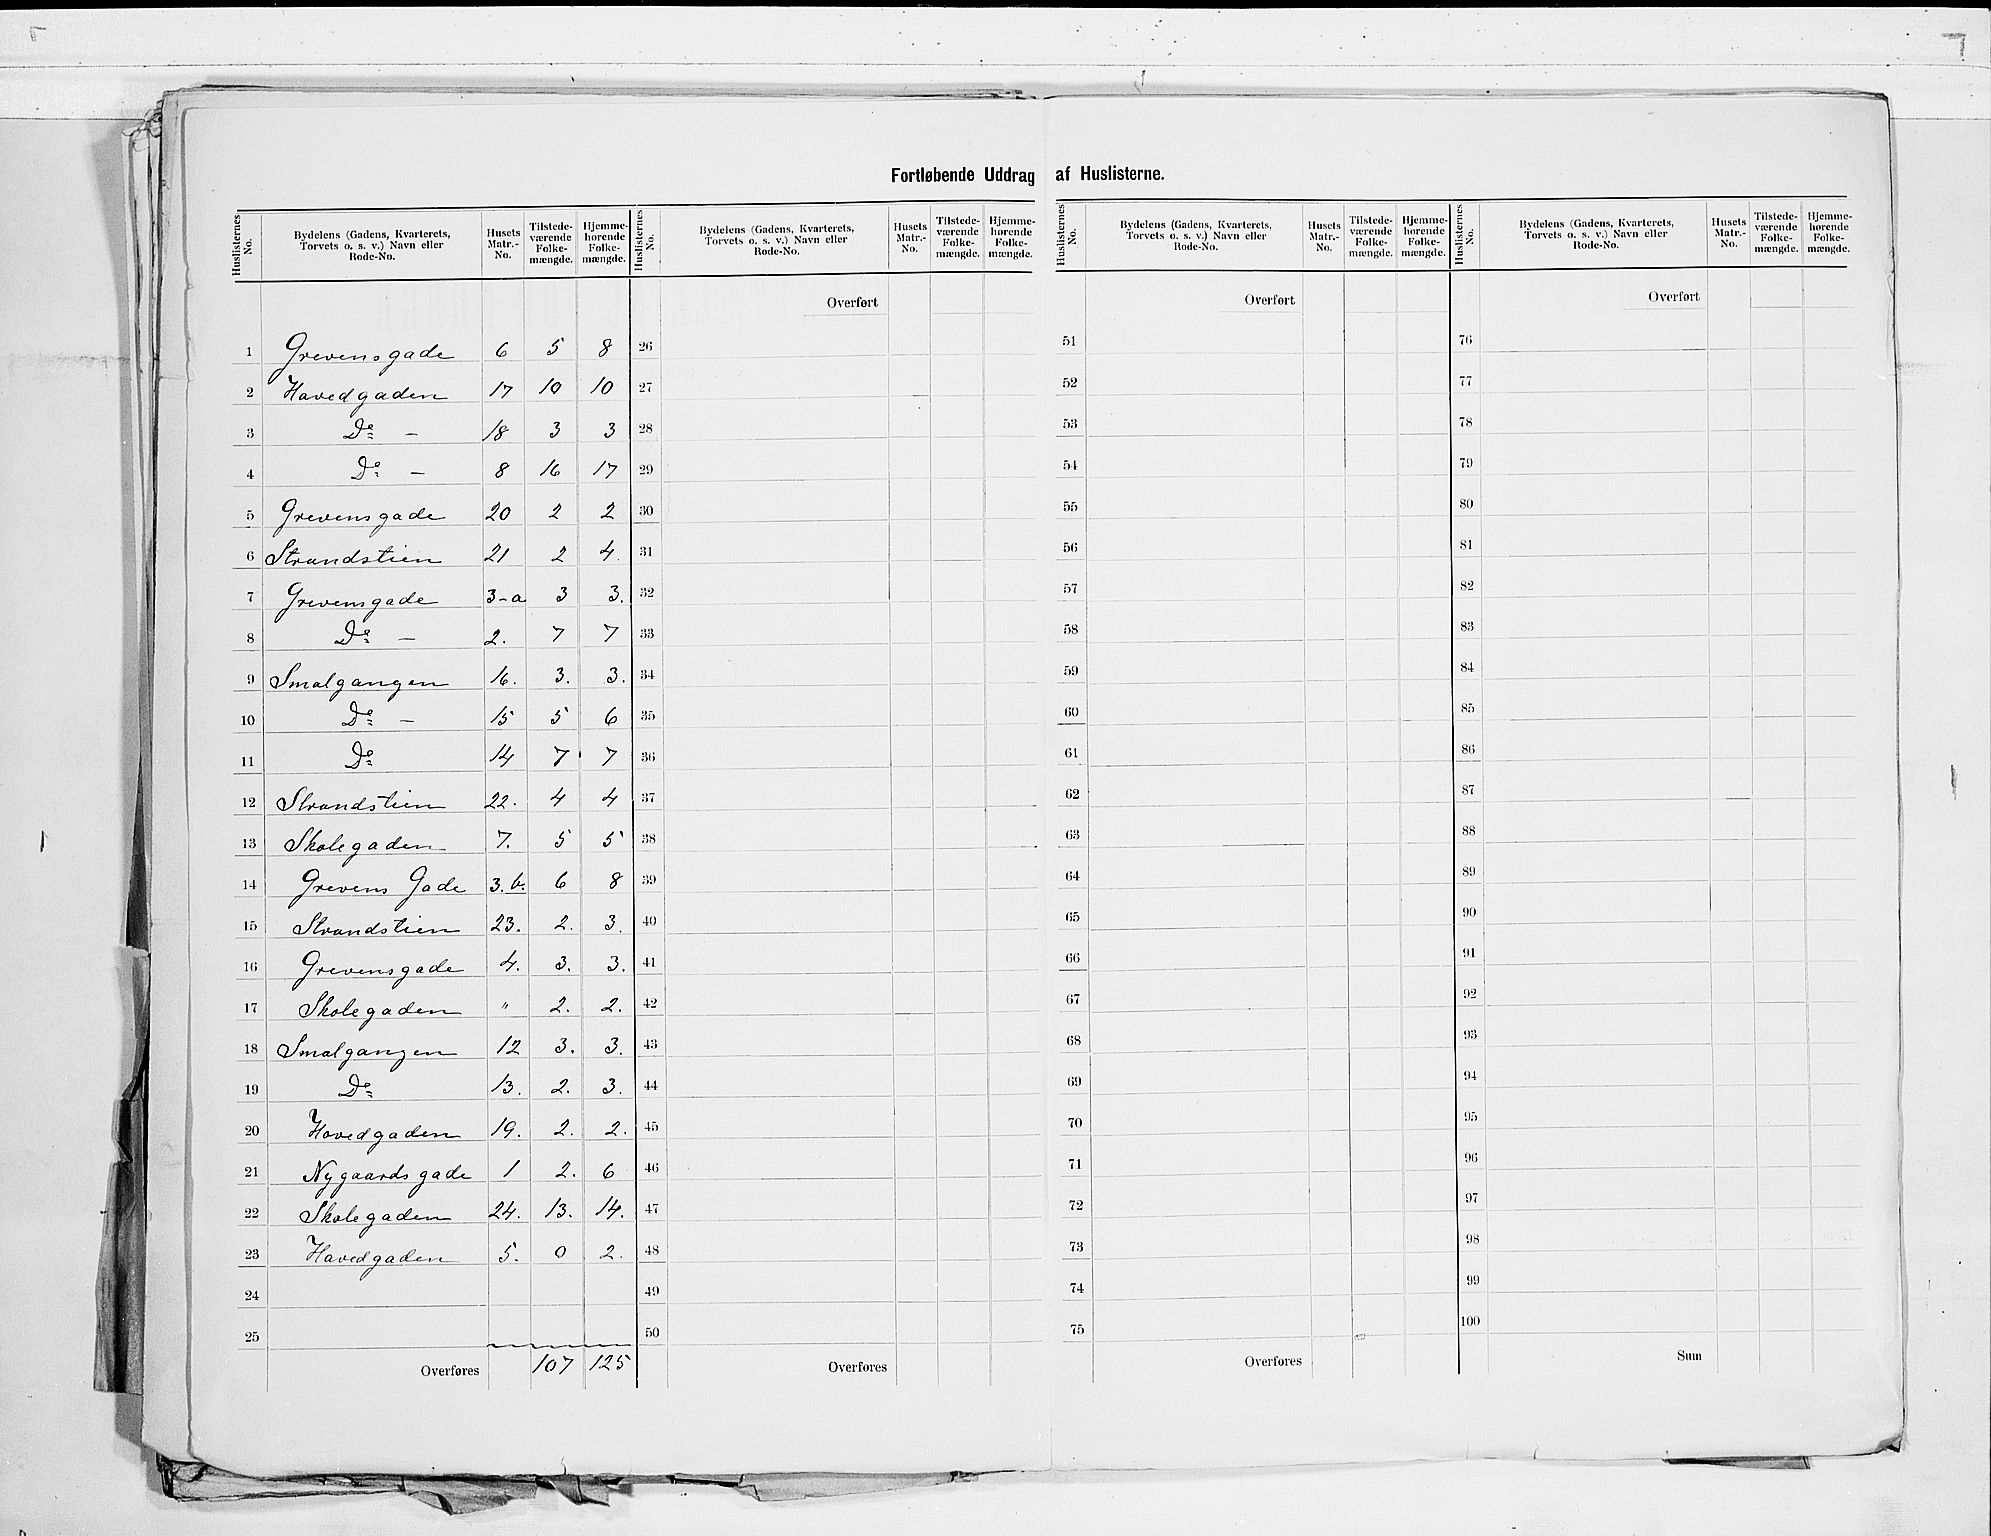 Fortløbende Uddrag af Huslisterne.
Huslisternes No. | Bydelens (Gadens, Kvarterets, Torvets o. s. v.) Navn eller Rode-No. | Husets Matr.-No. | Tilstede-værende Folke-mængde. | Hjemme-hørende Folke-mængde.
1 Grevensgade 6 5 8
2 Hovedgaden 17 10 10
3 Do — 18 3 3
4 Do — 8 16 17
5 Grevensgade 20 2 2
6 Strandstien 21 2 4.
7 Grevensgade 3-a 3 3.
8 Do — 2. 7 7
9 Smalgangen 16. 3. 3.
10 Do — 15 5 6
11 Do 14 7 7
12 Strandstien 22. 4 4
13 Skolegaden 7. 5 5
14 Grevens Gade 3.b. 6 8
15 Strandstien 23. 2. 3.
16 Grevensgade 4. 3. 3.
17 Skolegaden " 2. 2.
18 Smalgangen 12 3. 3.
19 Do 13. 2. 3.
20 Hovedgaden 19. 2. 2.
21 Nygaardsgade 1 2. 6
22 Skolegaden 24. 13. 14.
23 Hovedgaden 5. 0 2.
24
25
Overføres 107 125
Huslisternes No. | Bydelens (Gadens, Kvarterets, Torvets o. s. v.) Navn eller Rode-No. | Husets Matr.-No. | Tilstede-værende Folke-mængde. | Hjemme-hørende Folke-mængde.
Overført
26
27
28
29
30
31
32
33
34
35
36
37
38
39
40
41
42
43
44
45
46
47
48
49
50
Overføres
Huslisternes No. | Bydelens (Gadens, Kvarterets, Torvets o. s. v.) Navn eller Rode-No. | Husets Matr.-No. | Tilstede-værende Folke-mængde. | Hjemme-hørende Folke-mængde.
Overført
51
52
53
54
55
56
57
58
59
60
61
62
63
64
65
66
67
68
69
70
71
72
73
74
75
Overføres
Huslisternes No. | Bydelens (Gadens, Kvarterets, Torvets o. s. v.) Navn eller Rode-No. | Husets Matr.-No. | Tilstede-værende Folke-mængde. | Hjemme-hørende Folke-mængde.
Overført
76
77
78
79
80
81
82
83
84
85
86
87
88
89
90
91
92
93
94
95
96
97
98
99
100
Sum